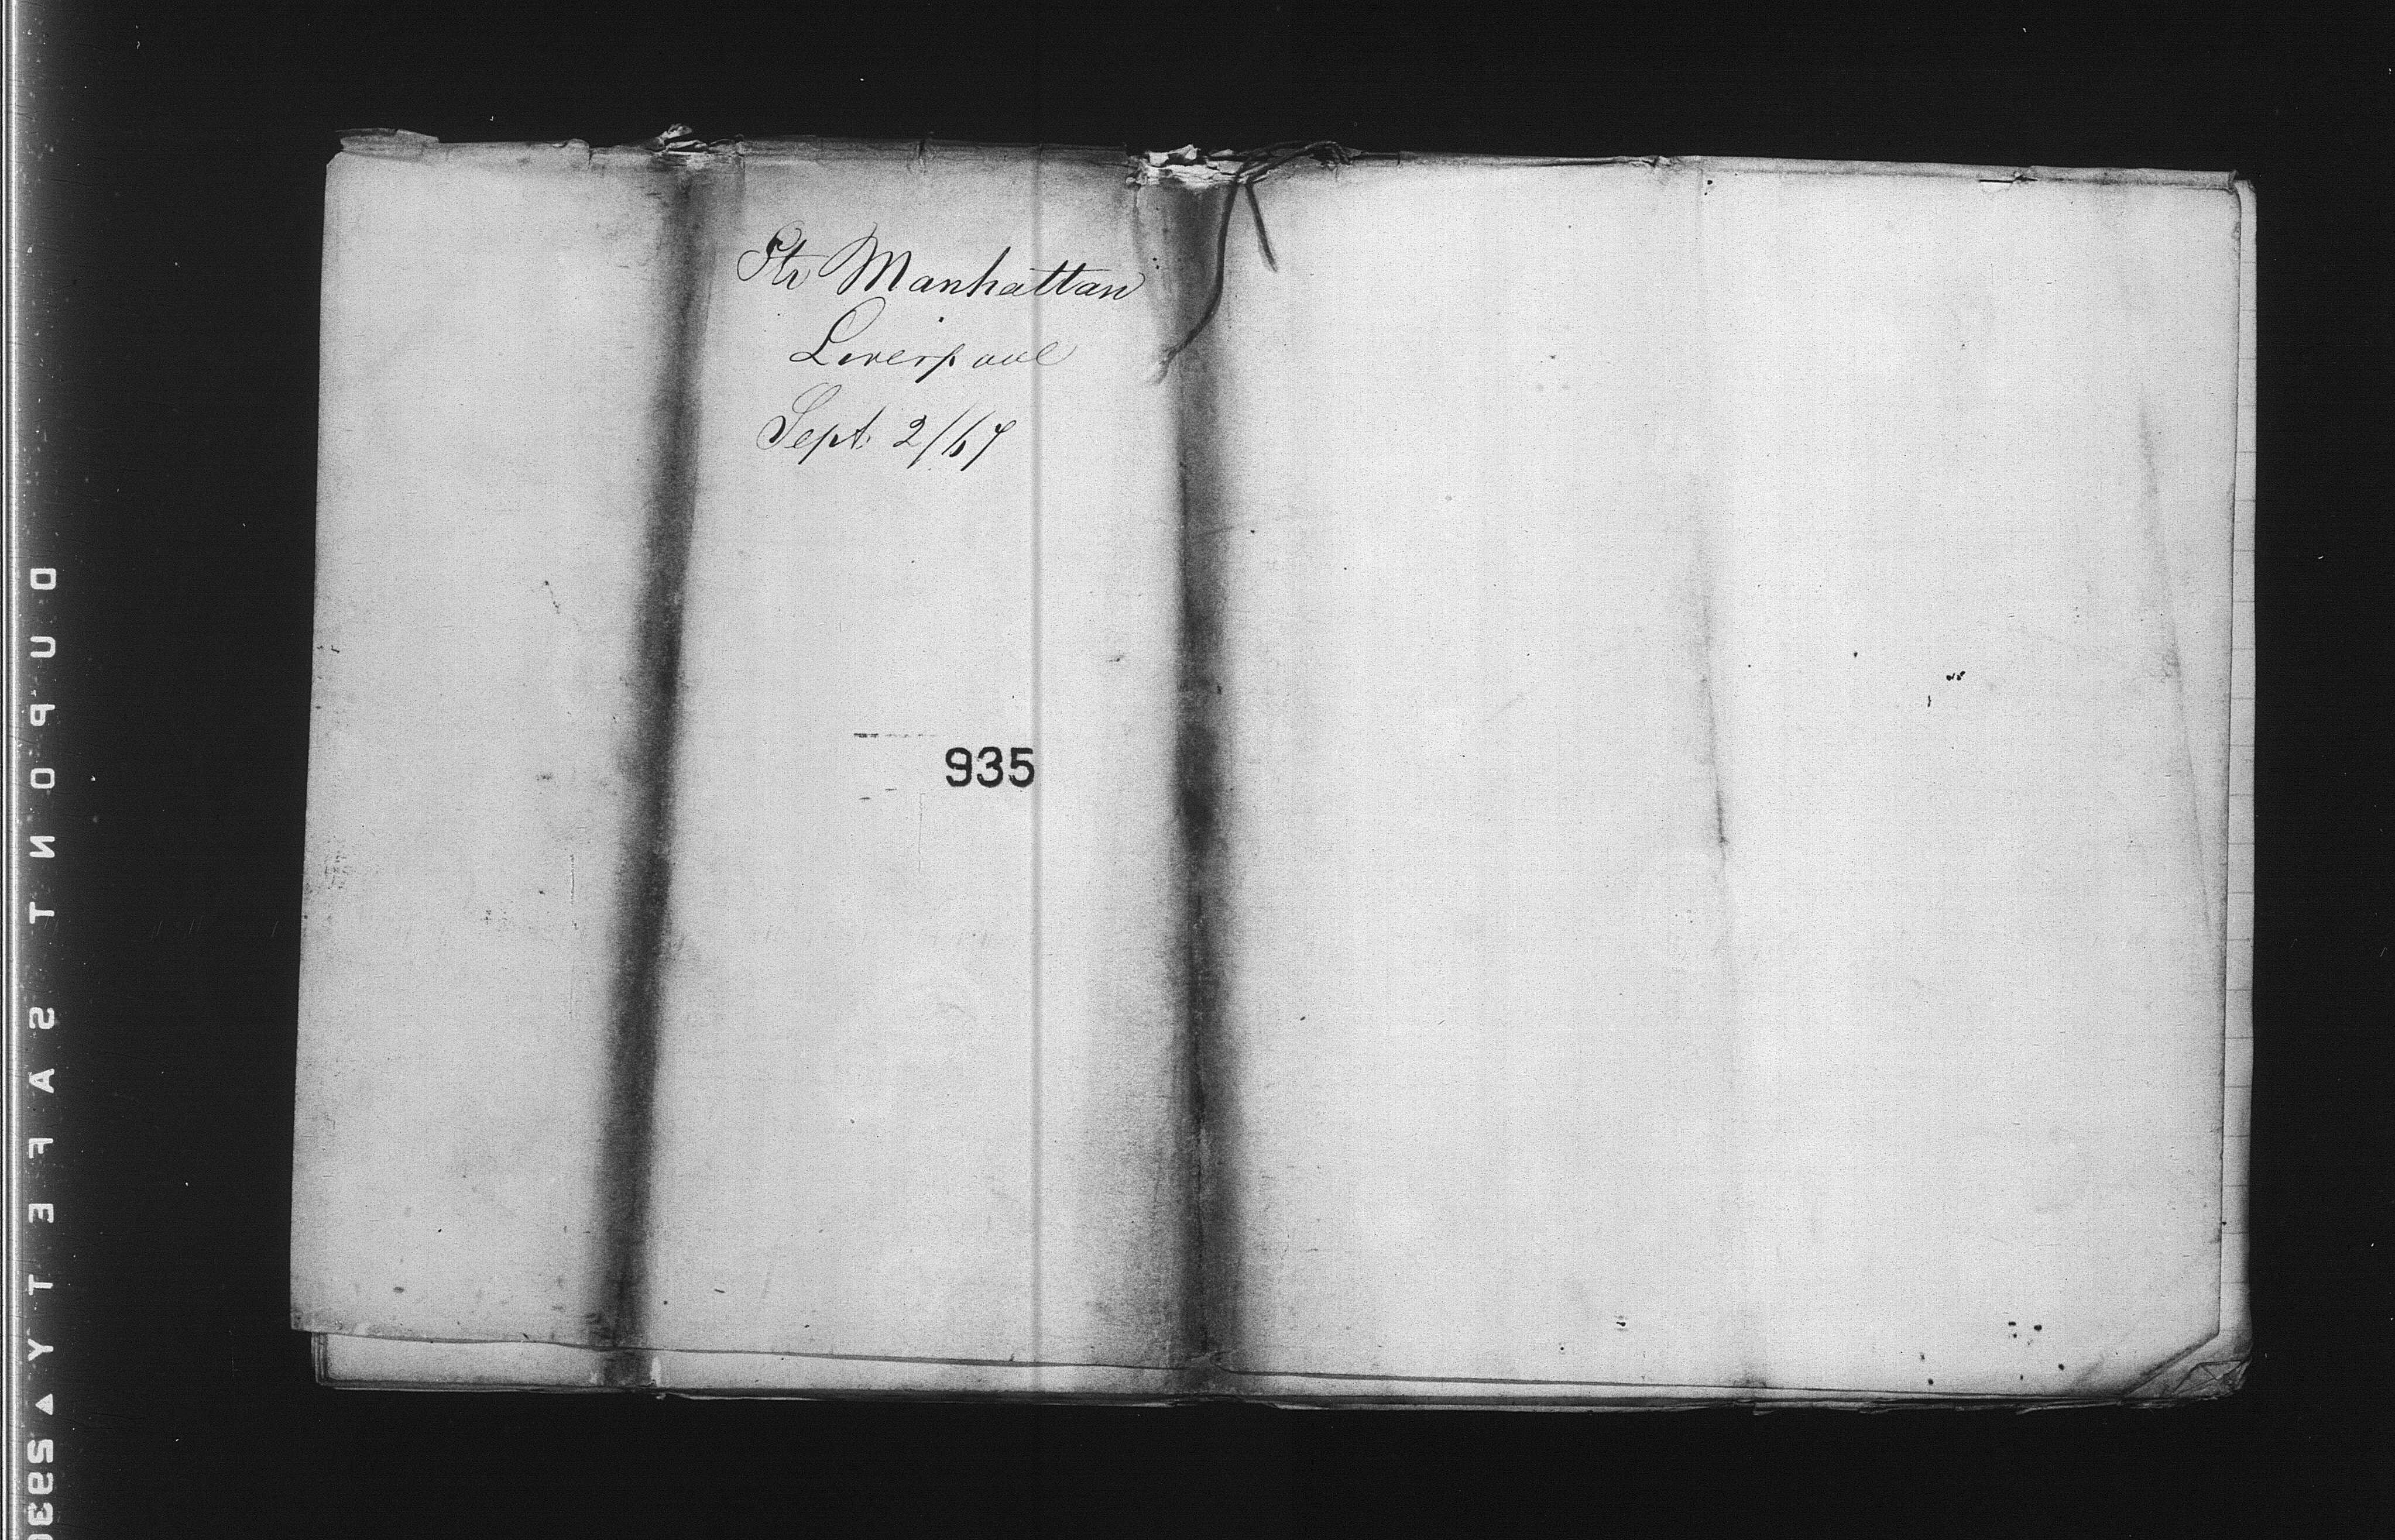 Str Manhattan
Liverpool
Sept. 2/67
935
DUPONT SAFETY